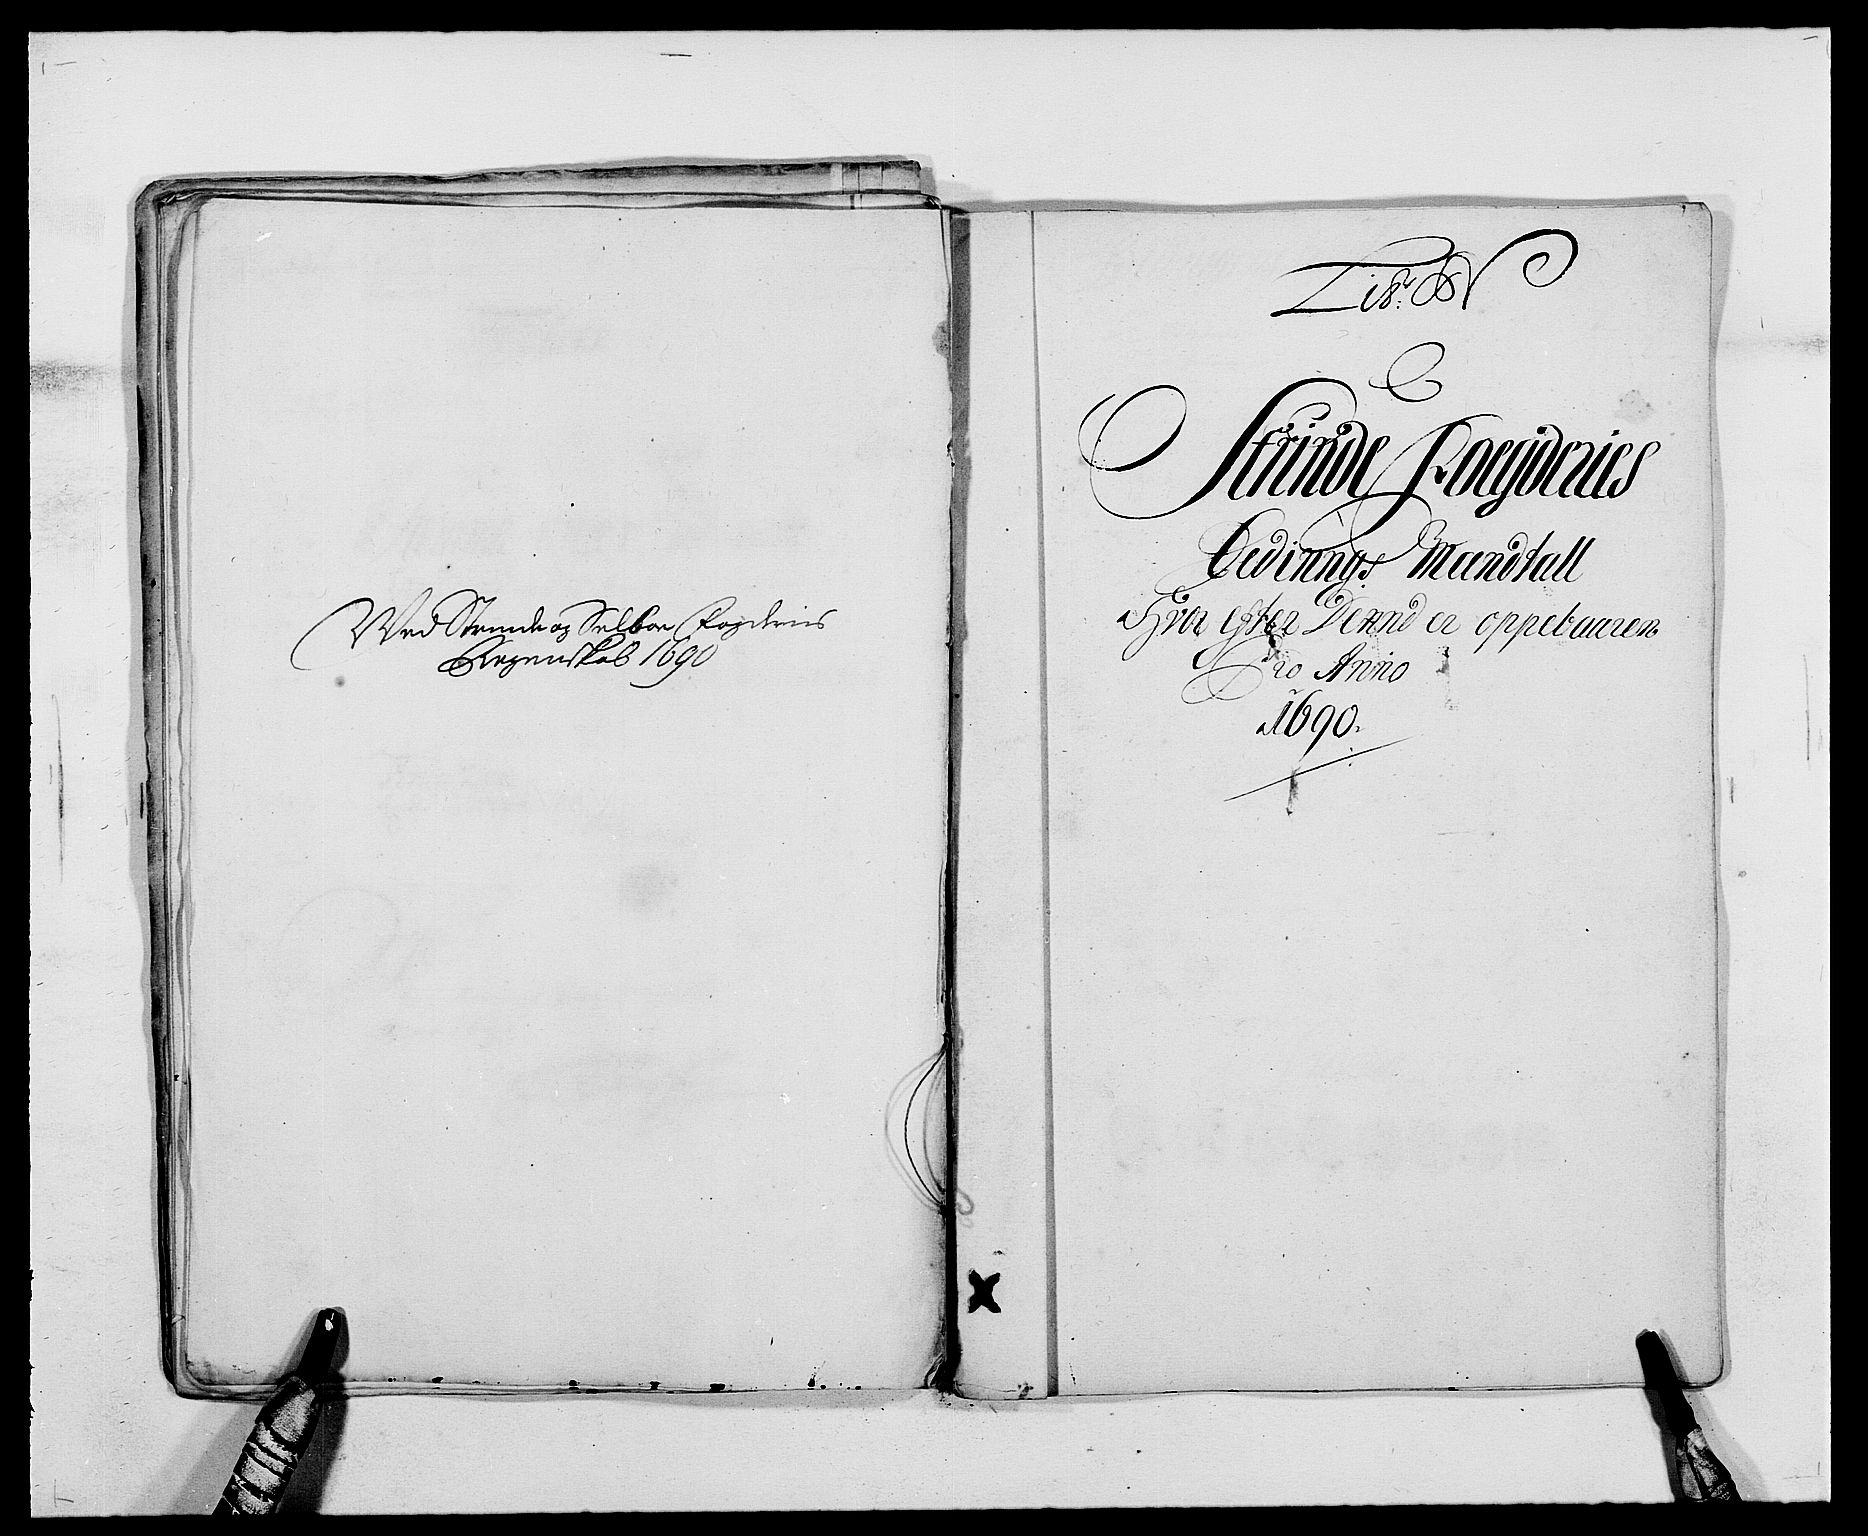 Ved Strinde og Selboe Fogderies
Regenskab 1690
Strinde Fogderies
Ledings Mandtall
Hvor efter Dennd er oppebaaren
Pro Anno
1690.